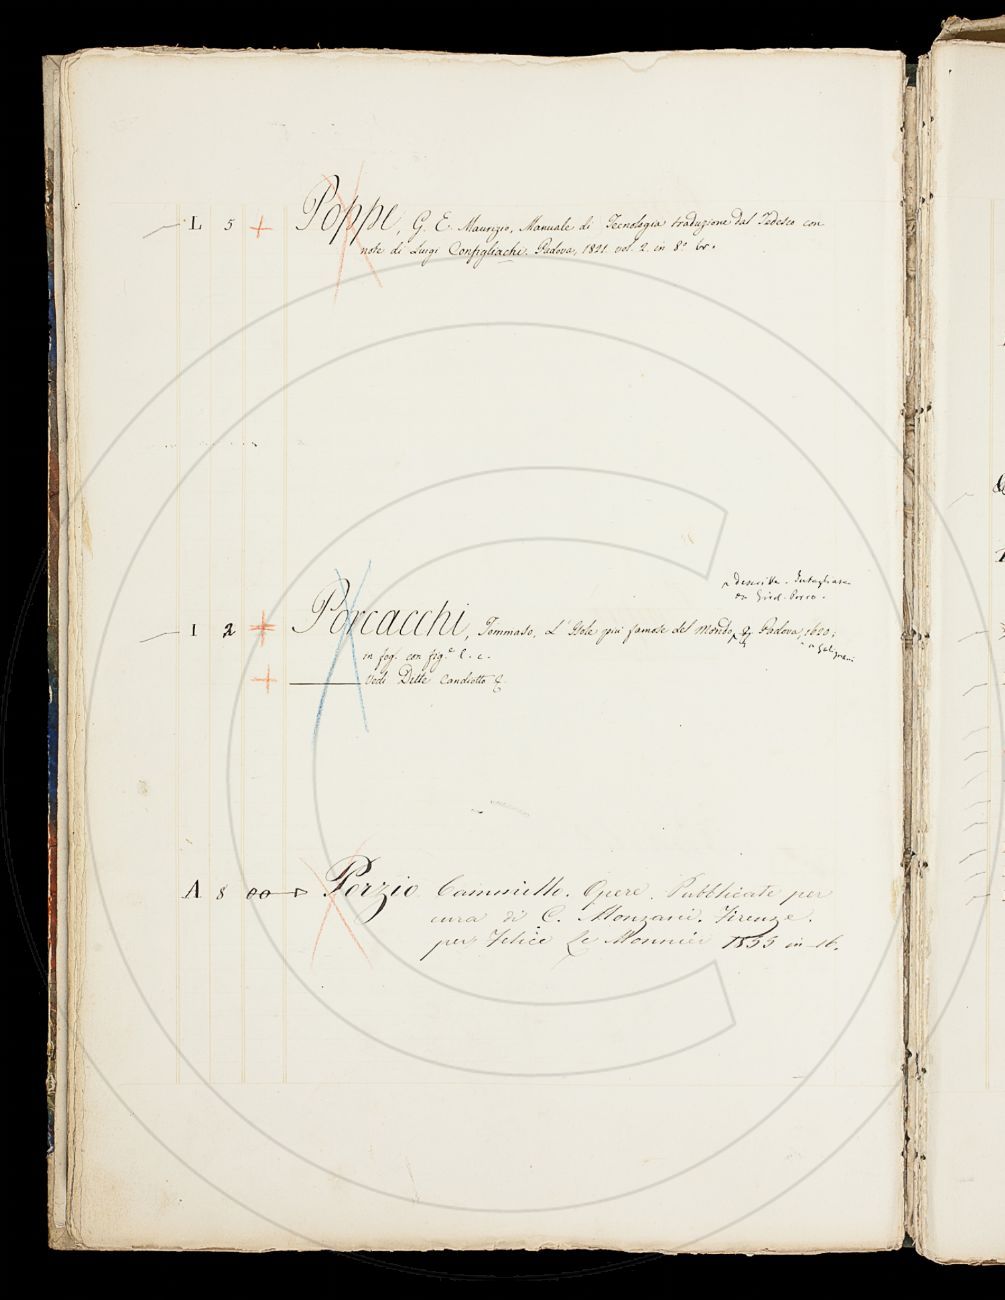 L 5 + Poppe, G. E. Maurizio, Manuale di Tecnologia traduzione dal Tedesco con
note di Luigi Configliachi. Padova, 1821. vol. 2. in 8.º br.
descritte. Intagliate
da Girol. Porro.
I 2 + Porcacchi, Tommaso, L'Isole più famose del Mondo, & Padova, 1620;
in fog. con fig.e l. c.
+ ——— Vedi Dette Candiotto &
A 8 00 Porzio Cammillo. Opere. Pubblicate per
cura di C. Monzani. Firenze.
per Felice Le Monnier 1855 in 16.